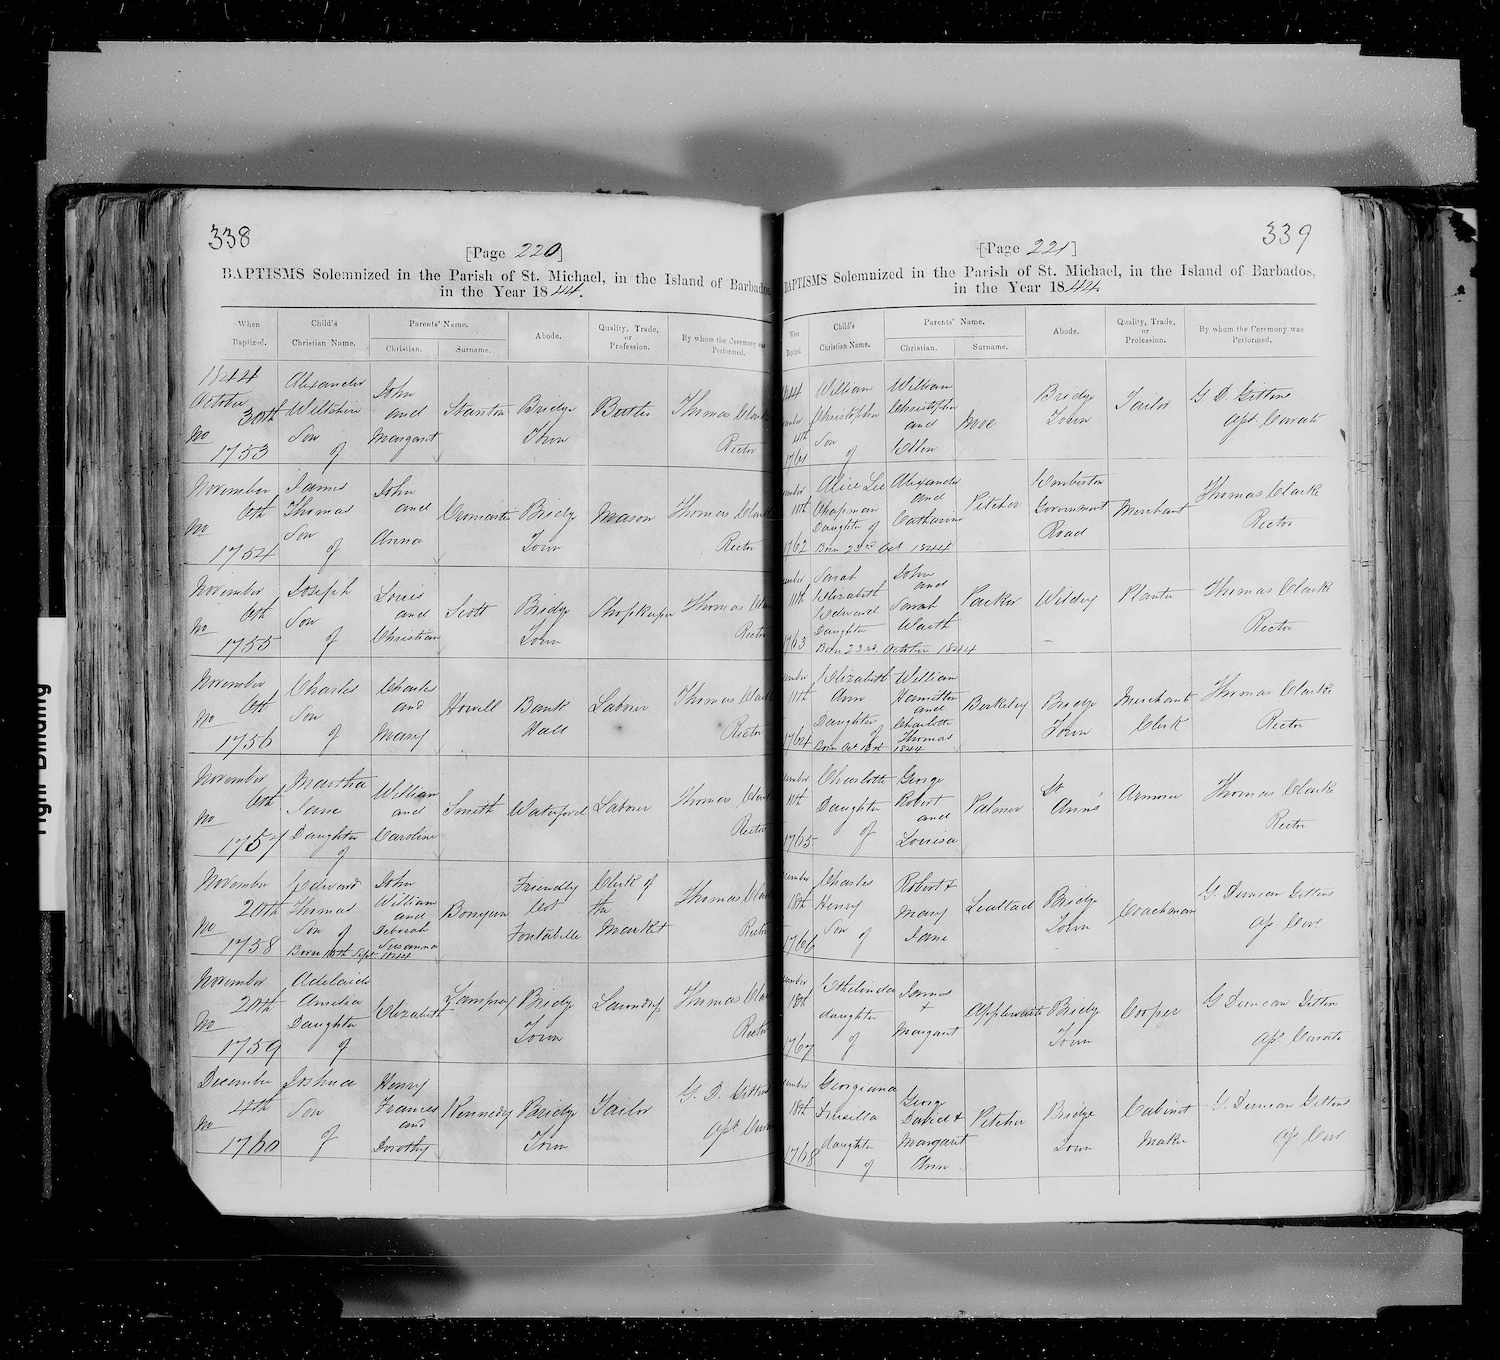 338
[Page 220]
BAPTISMS Solemnized in the Parish of St. Michael, in the Island of Barbados
in the Year 1844.
When Baptized. Child's Christian Name. Parents' Name. Christian. Surname. Abode. Quality, Trade, or Profession. By whom the Ceremony was Performed.
1844 October 30th No 1753 Alexander Wiltshire Son of John and Margaret Stanton Bridge Town Butler Thomas Clark Rector
November 6th No 1754 James Thomas Son of John and Anna Bridge Town Mason Thomas Clark Rector
November 6th No 1755 Joseph Son of Louis and Christian Scott Bridge Town Shopkeeper Thomas Rector
November 6th No 1756 Charles Son of Charles and Mary Howell Bank Hall Labrer Thomas Clark Rector
November 6th No 1757 Martha Jane Daughter of William and Caroline Smith Waterford Labrer Thomas Clar Rector
November 20th No 1758 Edward Thomas Son of Born 10th Sept 1844 John William and Deborah Susanna Bonyun Friendly Cot Fontabelle Clerk of the Market Thomas Cla Rector
November 20th No 1759 Adelaide Amelia Daughter of Elizabeth Lamprey Bridge Town Laundry Thomas Cla Rector
December 4th No 1760 Joshua Son of Henry Frances and Dorothy Kennedy Bridge Town Tailor G. D. Gittens Apt Cura
339
[Page 221]
BAPTISMS Solemnized in the Parish of St. Michael, in the Island of Barbados,
in the Year 1844
When Baptized. Child's Christian Name. Parents' Name. Christian. Surname. Abode. Quality, Trade, or Profession. By whom the Ceremony was Performed.
1844 ember 4th 1761 William Christopher Son of William Christopher and Ellen Moe Bridge Town Tailor G D Gittens Apt Curate
ember 11th 1762 Alice Lee Chapman Daughter of Born 23rd Oct 1844 Alexander and Catharine Pitcher Pemberton Government Road Merchant Thomas Clarke Rector
ember 11th 1763 Sarah Elizabeth Edward Daughter Born 22nd October 1844 John and Sarah Warth Parker Wildey Planter Thomas Clarke Rector
ember 11th 1764 Elizabeth Ann Daughter of Born Oct 1844 William Hamilton and Charlotte Thomas Berkeley Bridge Town Merchants Clerk Thomas Clarke Rector
ember 11th 1765 Charlotte Daughter of George Robert and Louisa Palmer St Ann's Armorer Thomas Clarke Rector
ember 18th 1766 Charles Henry Son of Robert & Mary Jane Bridge Town Coachman G Duncan Gittens Ap Cure
ember 18th 1767 Ethelinda daughter of James & Margaret Applewaite Bridge Town Cooper G Duncan Gittens Apt Curate
ember 18th 1768 Georgiana Drusilla daughter of George David & Margaret Ann Pitcher Bridge Town Cabinet Maker G Duncan Gittens Ap Cure